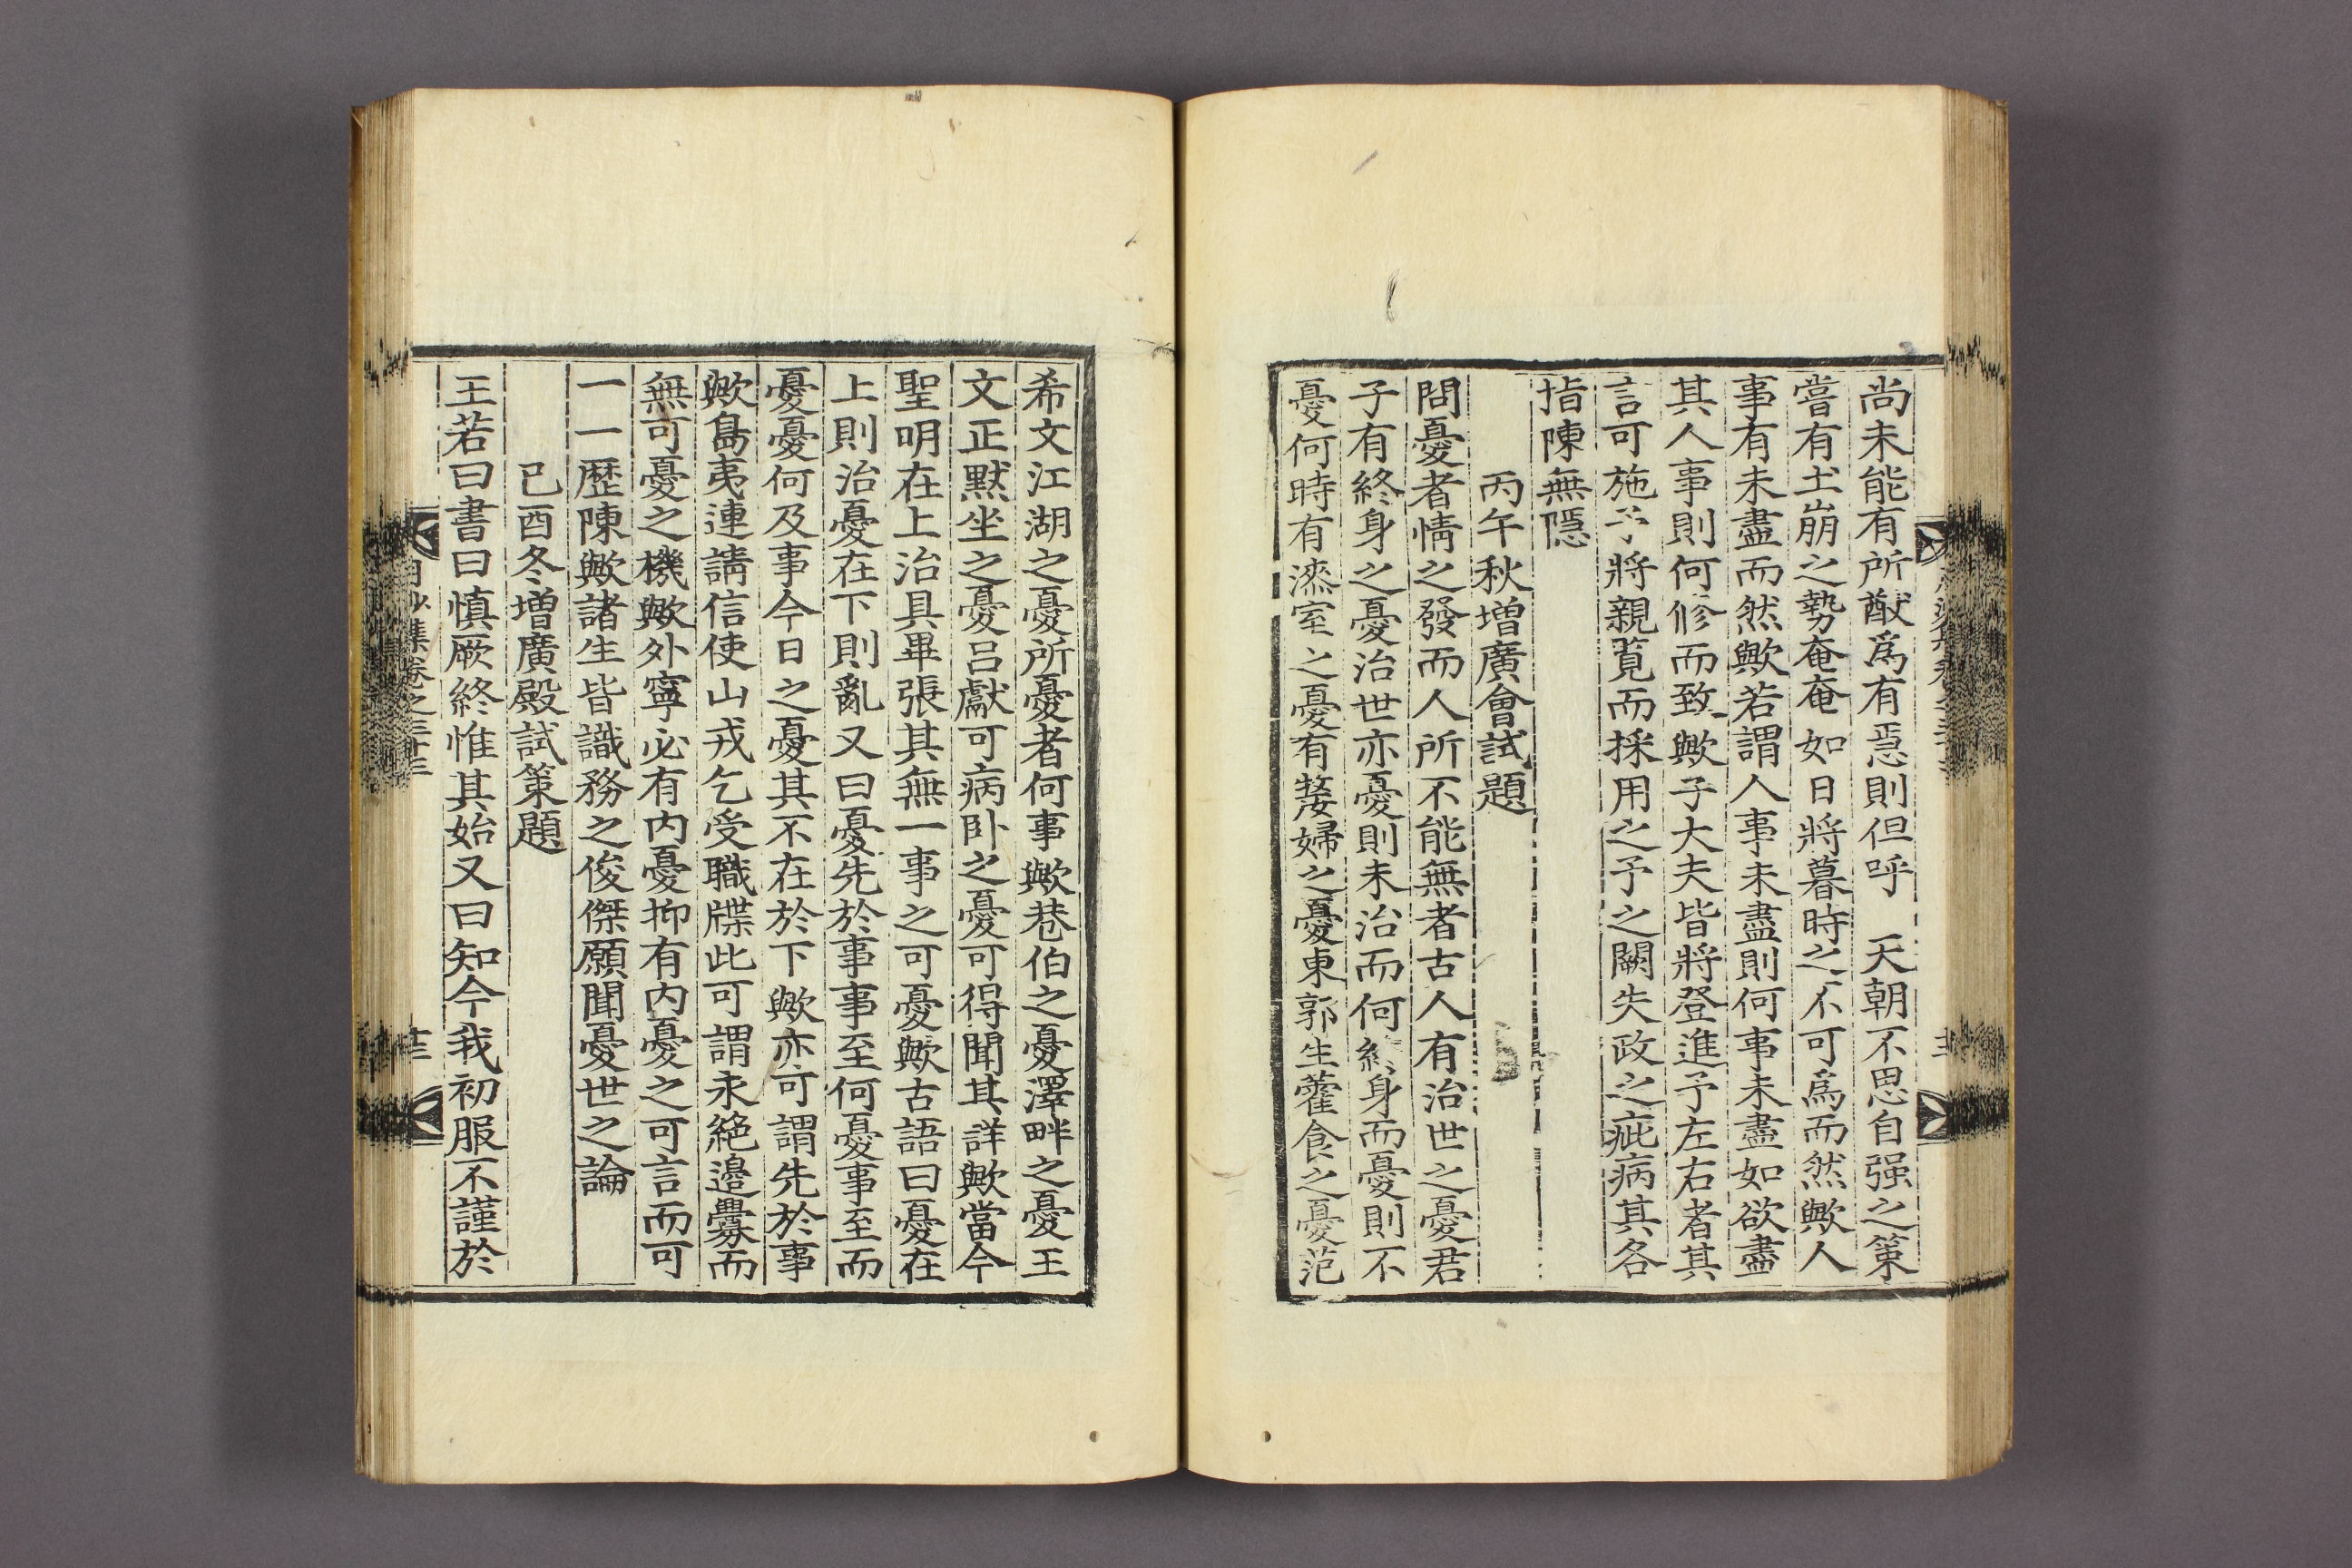 尚未能有所猷爲有憂則但呼　天朝不思自强之策
嘗有土崩之勢奄奄如日將暮時之不可爲而然歟人
事有未盡而然歟若謂人事未盡則何事未盡如欲盡
其人事則何修而致歟子大夫皆將登進予左右者其
言可施予將親覽而採用之予之闕失政之疵病其各
指陳無隱
丙午秋增廣會試題
問憂者情之發而人所不能無者古人有治世之憂君
子有終身之憂治世亦憂則未治而何終身而憂則不
憂何時有漆室之憂有嫠婦之憂東郭生藿食之憂范
希文江湖之憂所憂者何事歟巷伯之憂澤畔之憂王
文正默坐之憂呂獻可病卧之憂可得聞其詳歟當今
聖明在上治具畢張其無一事之可憂歟古語曰憂在
上則治憂在下則亂又曰憂先於事事至何憂事至而
憂憂何及事今日之憂其不在於下歟亦可謂先於事
歟島夷連請信使山戎乞受職牒此可謂永絶邊釁而
無可憂之機歟外寧必有内憂抑有内憂之可言而可
一一歷陳歟諸生皆識務之俊傑願聞憂世之論
己酉冬增廣殿試策題
王若曰書曰愼厥終惟其始又曰知今我初服不謹於
集卷之三十三
十三